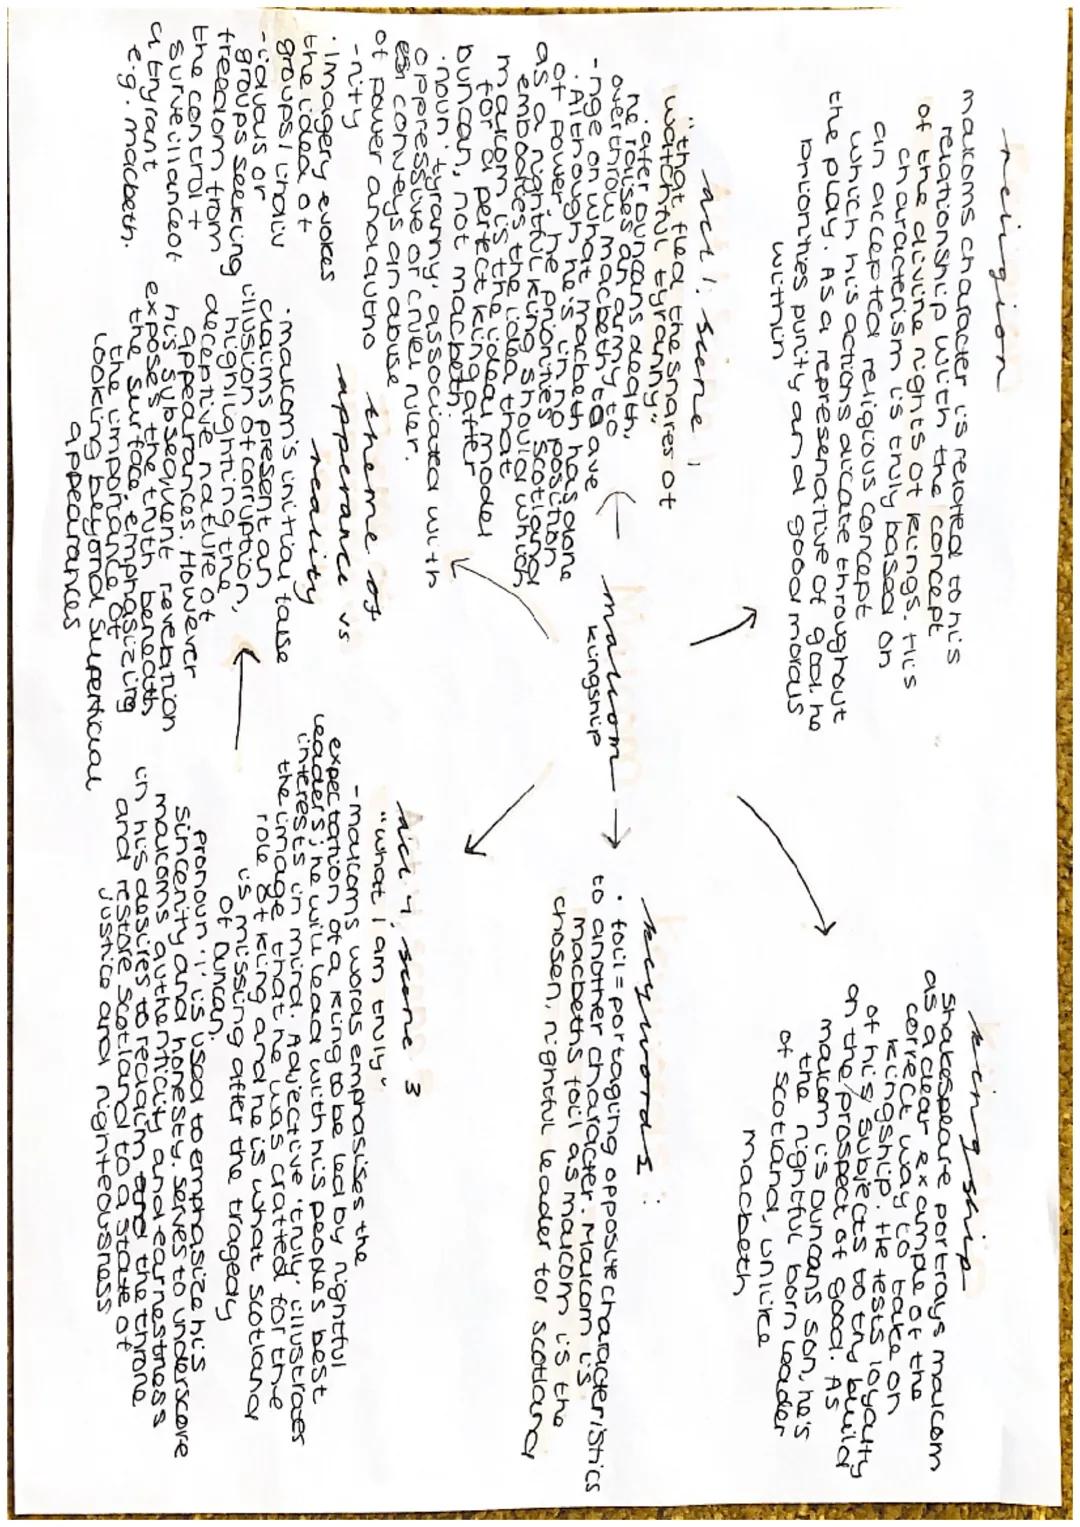 religion
malcoms character is related to his
relationship with the concept
of the divine rights of kings. His
characterism is truly based on
an accepted religious concept
which his actions dicate throughout
the play. As a represenative of good. he
priorities purity and good morals
within
kingship
Shakespeare portrays malcom
as a clear example of the
correct way to take on
kingship. He tests loyalty
of his subjects to try build
on the/prospect of good. As
malcom is Duncans son, he's
the rightful born leader
of scotland, unlike
macbeth
malcom
kingship
act 1: scene 1
"that fled the snares of
watchful tyranny"
· after Duncans death,
he raises an army to
overthrow macbeth to ave
-nge on what macbeth has done
· Although he's in no position
of power, he priorities Scotland
as a rightful king should which
embodies the idea that
malcom is the ideal model
for a perfect king after
Duncan, not macbeth.
· noun 'tyranny' associated with
oppressive or cruel ruler.
conveys an abuse
of power and autho
-rity
· Imagery evokes
the idea of
groups/ indiv
-iduals or
groups seeking
freedom from
the control +
surveillance of
a tryrant
e.g. macbeth.
keywords:
· foil = portaging opposite characteristics
to another character. Malcom is
macbeths foil as malcom is the
chosen, rightful leader for scotland
theme of
apperance vs
reality
· malcom's initial false
claims present an
illusion of corruption,
highlighting the
deceptive nature of
appearances. However
his subsequent revelation
expose the truth beneath
the surface, emphasizing
the importance of
looking beyond superficial
appearances
Act 4, scene 3
"what I am truly"
- malcoms words emphasises the
expectation of a king to be led by rightful
leaders; he will lead with his peoples best
interests in mind. Adjective 'truly' illustrates
the image that he was crafted for the
role of king and he is what scotland
is missing after the tragedy
of Duncan.
pronoun 'I' is used to emphasize his
sincerity and honesty. serves to underscore
malcoms authenticity and earnestness
in his desires to reclaim the throne
and restore Scotland to a state of
justice and righteousness